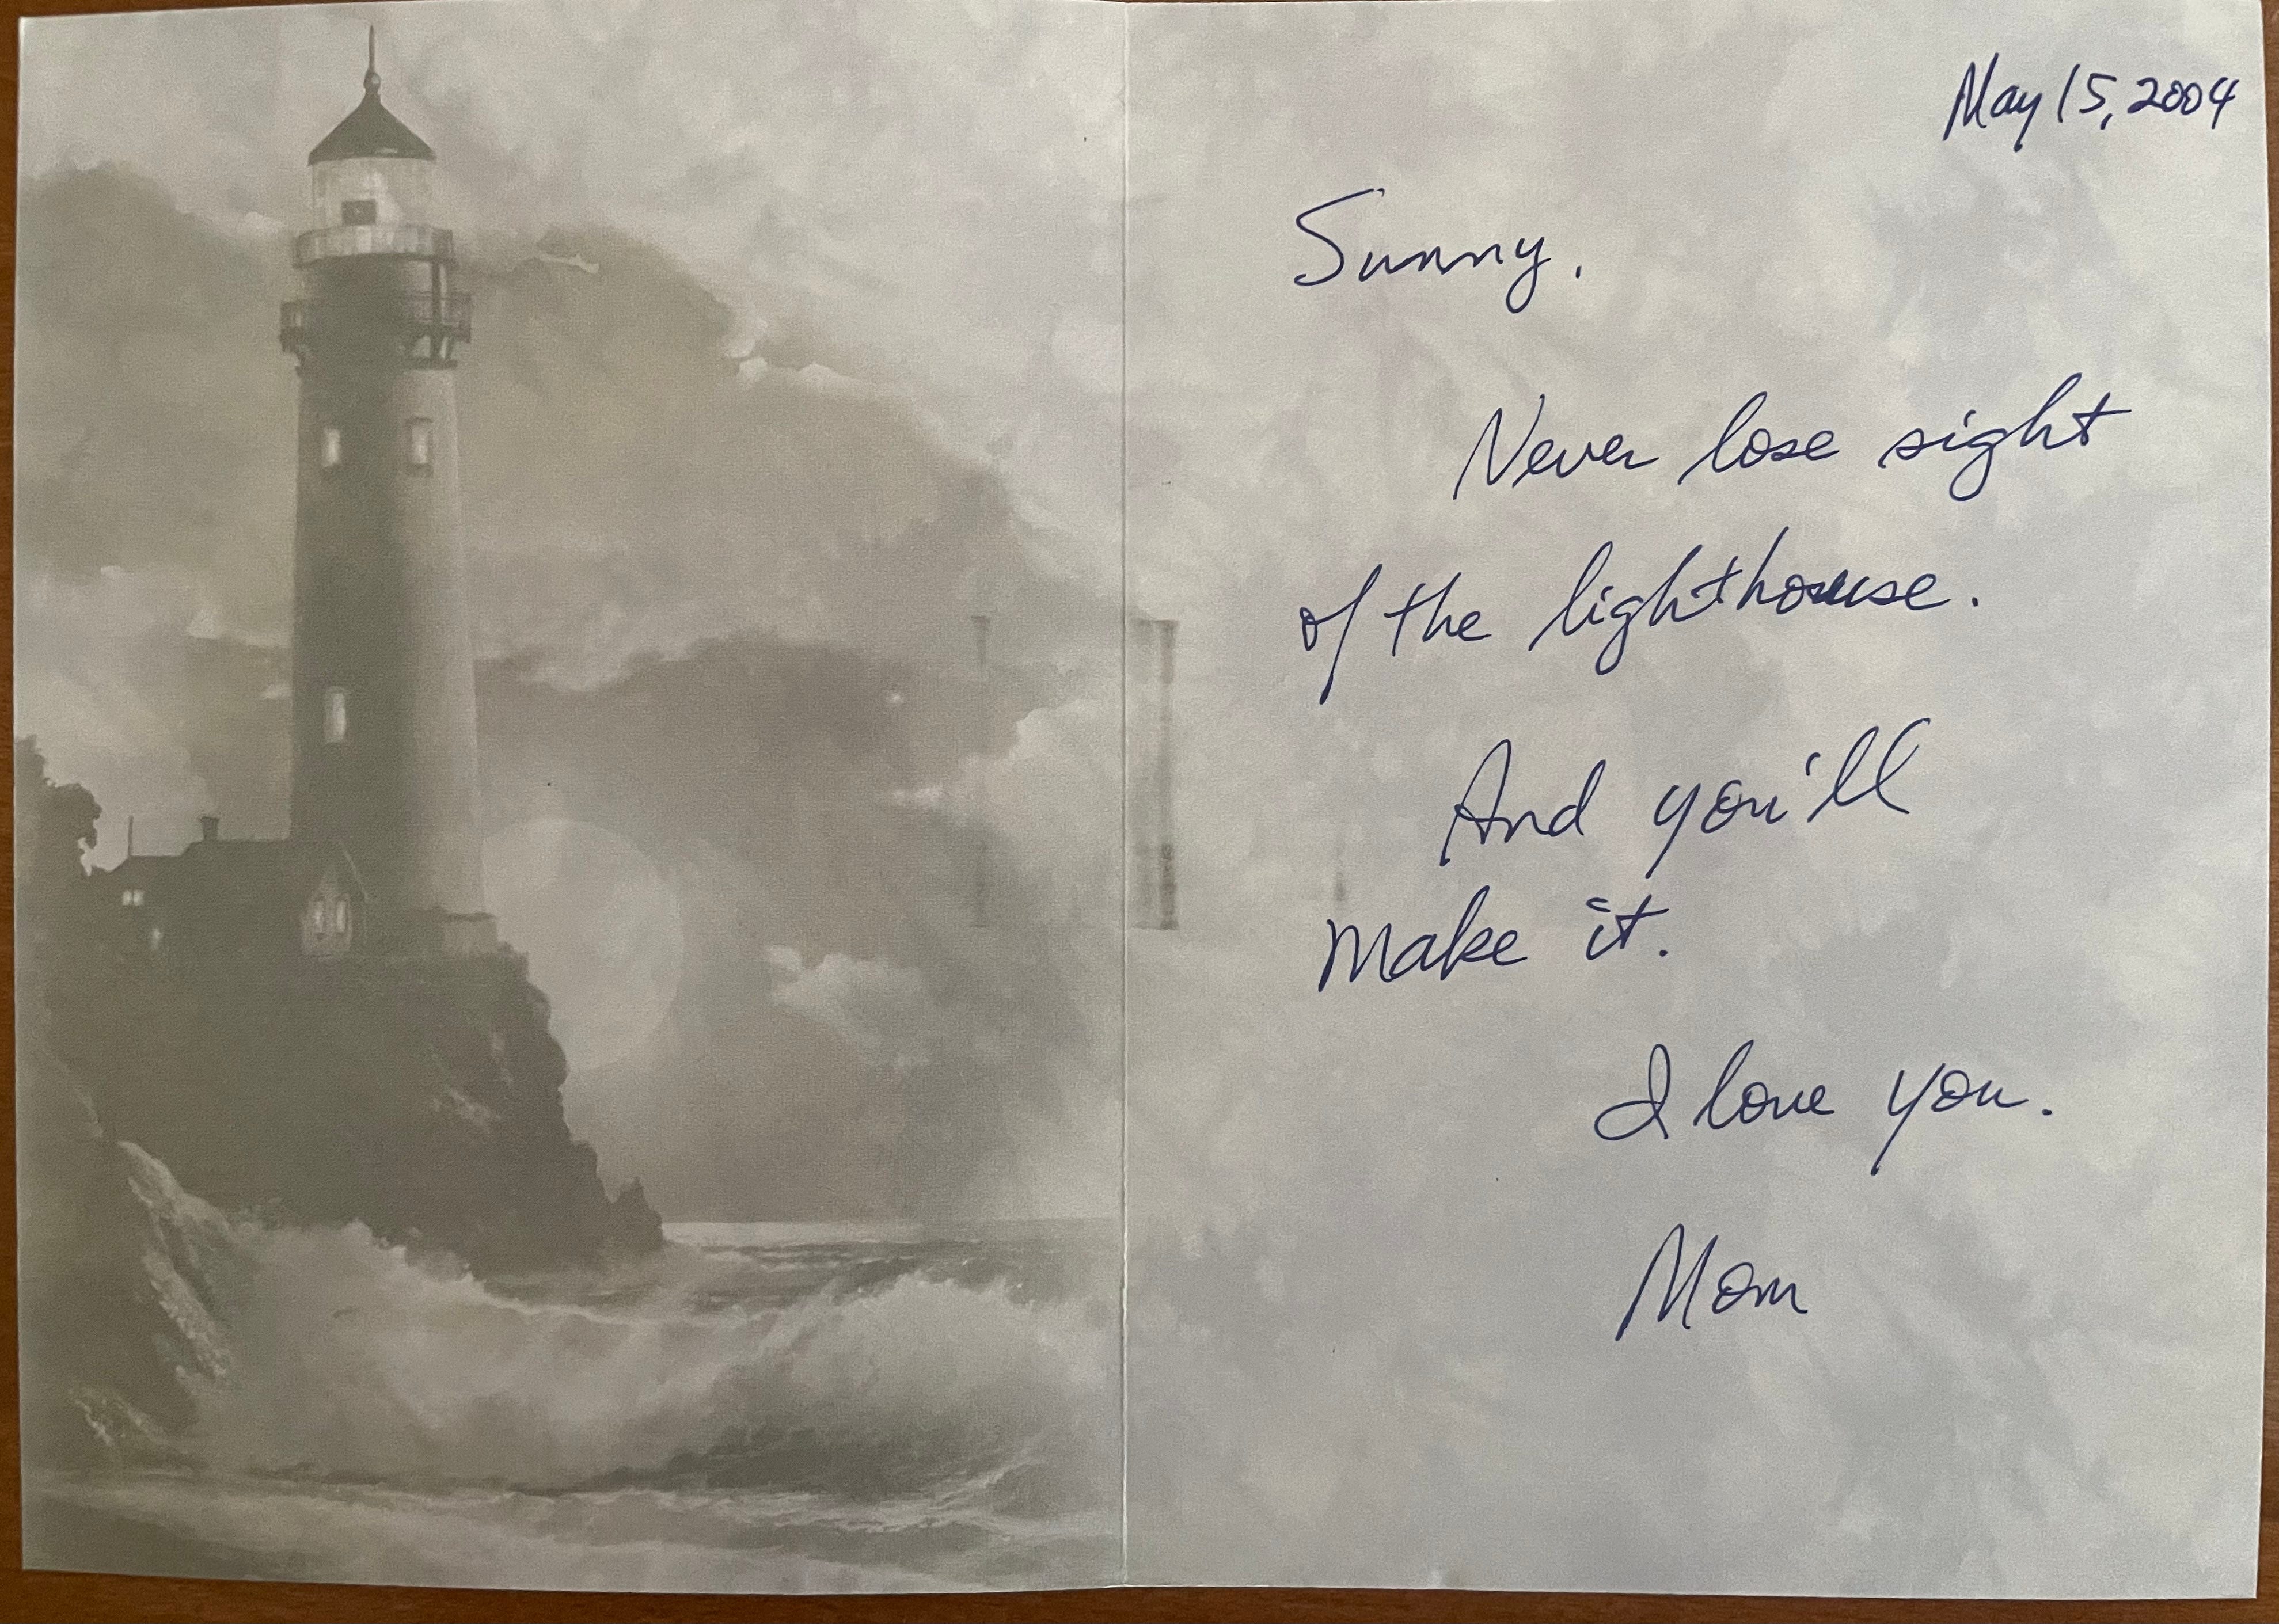 May 15, 2004
Sunny.
Never lose sight
of the lighthouse.
And you'll
make it.
I love you.
Mom